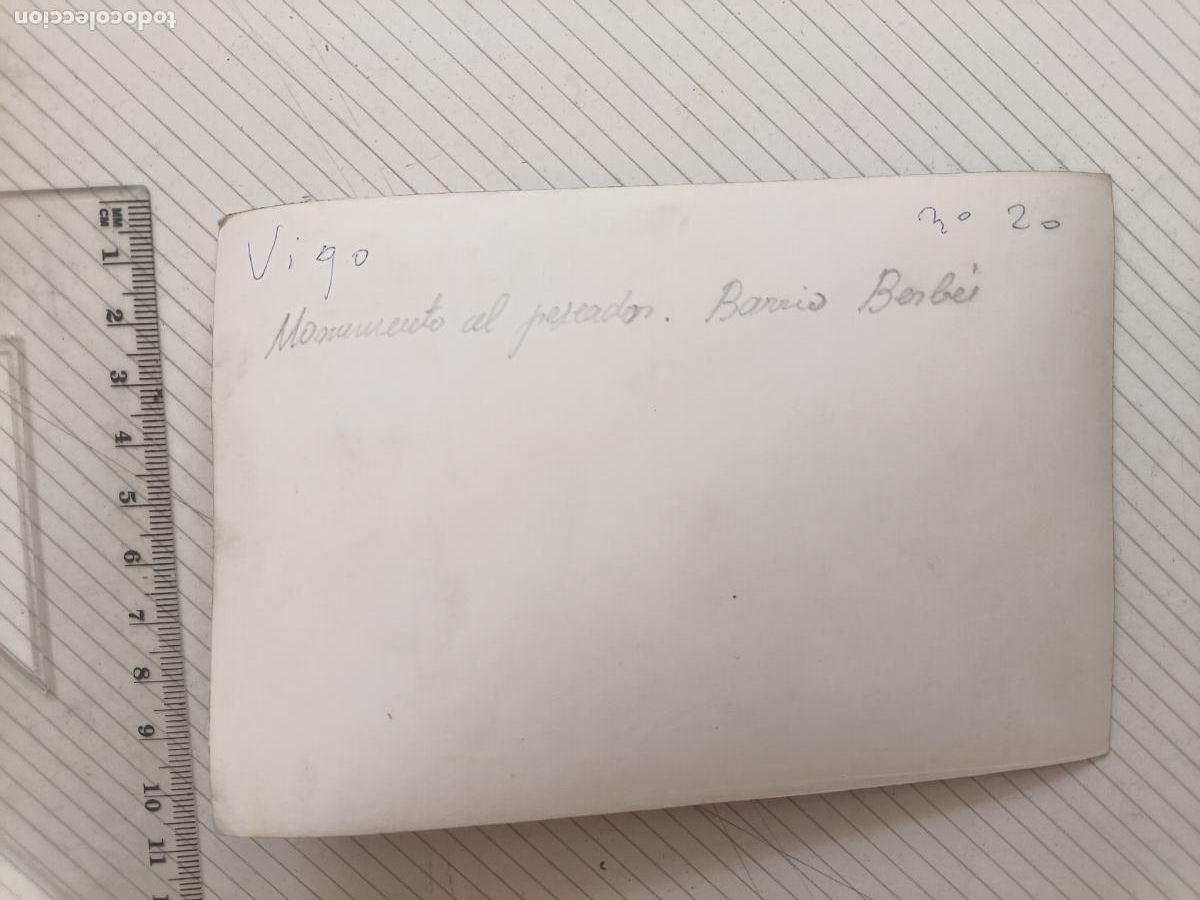 todocoleccion
Vigo nº 20
Monumento al pescador. Barrio Berbés
MM
CM
1
2
3
4
5
6
7
8
9
10
11